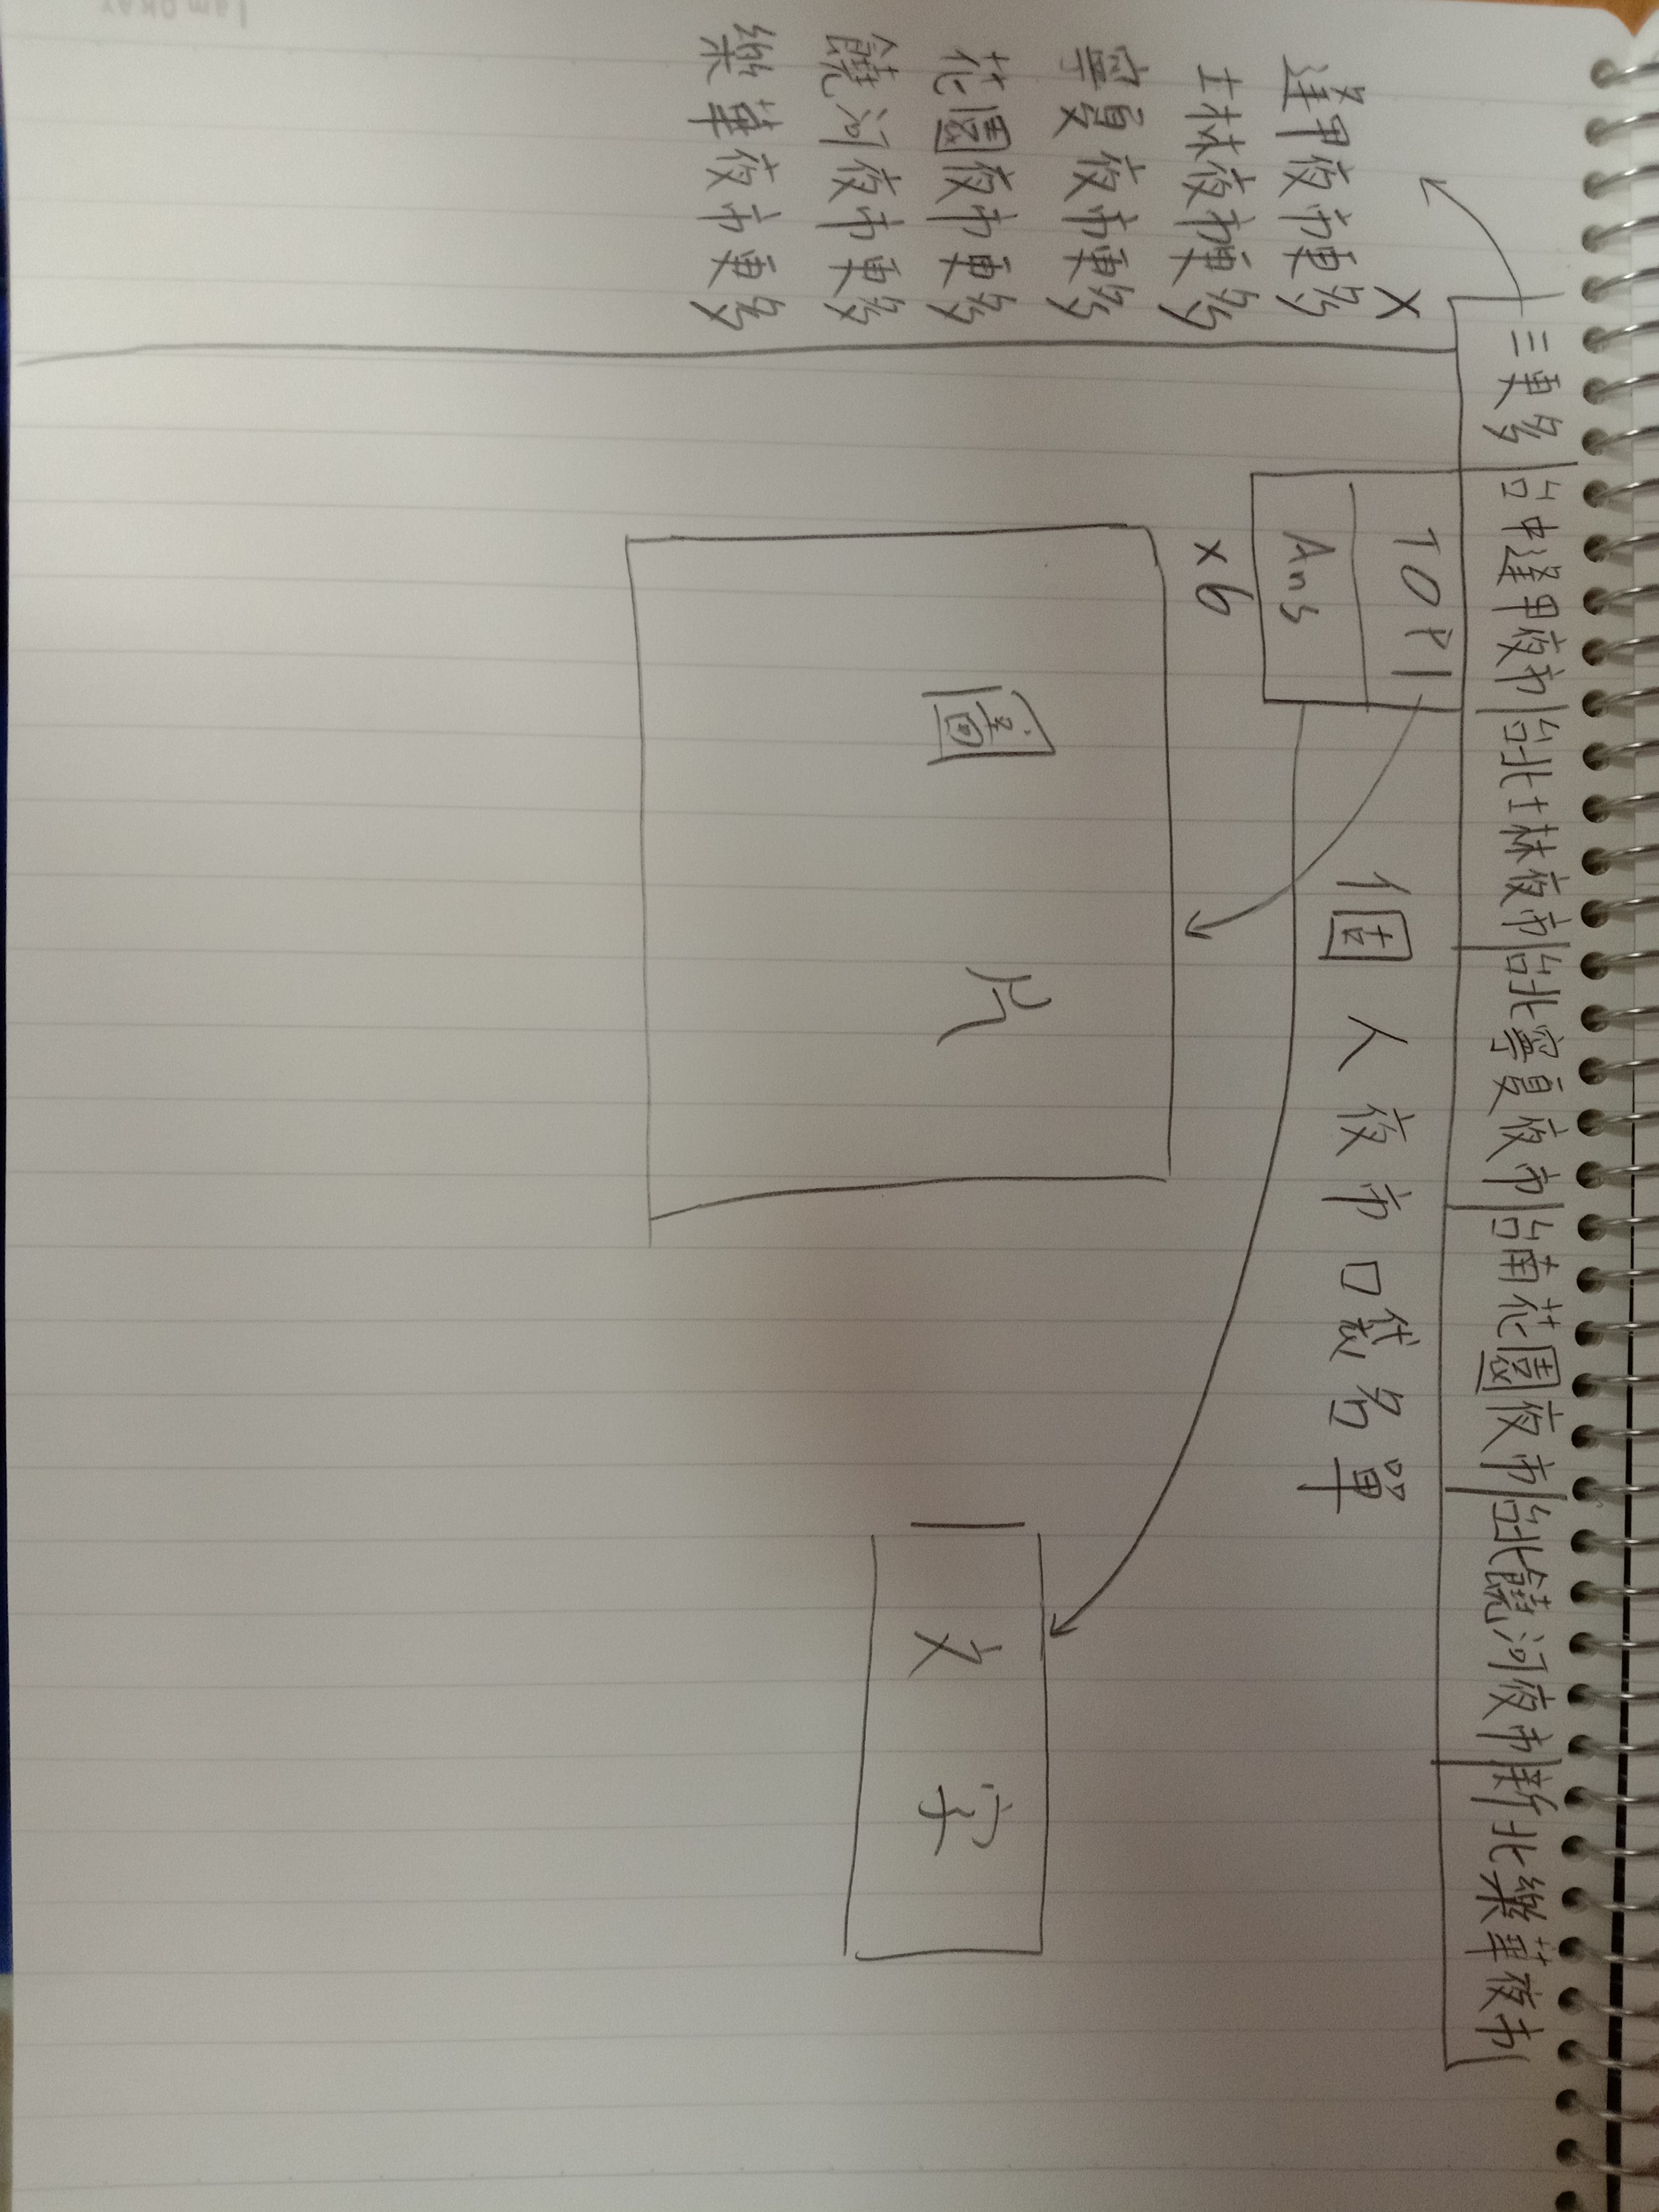 三更多 台中逢甲夜市 台北士林夜市 台北寧夏夜市 台南花園夜市 台北饒河夜市 新北樂華夜市
X
逢甲夜市更多
士林夜市更多
寧夏夜市更多
花園夜市更多
饒河夜市更多
樂華夜市更多
TOP1
Ans
x6
個人夜市口袋名單
圖片
文字
I am OKAY